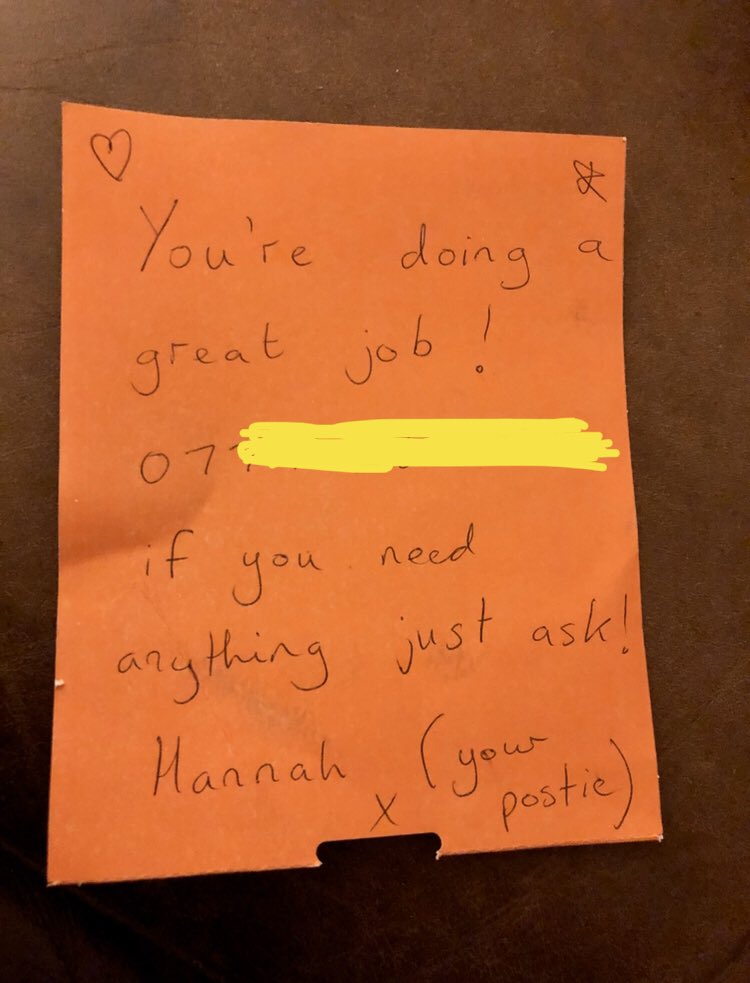 You're doing a
great job!
077
if you need
anything just ask!
Hannah (your
x postie)